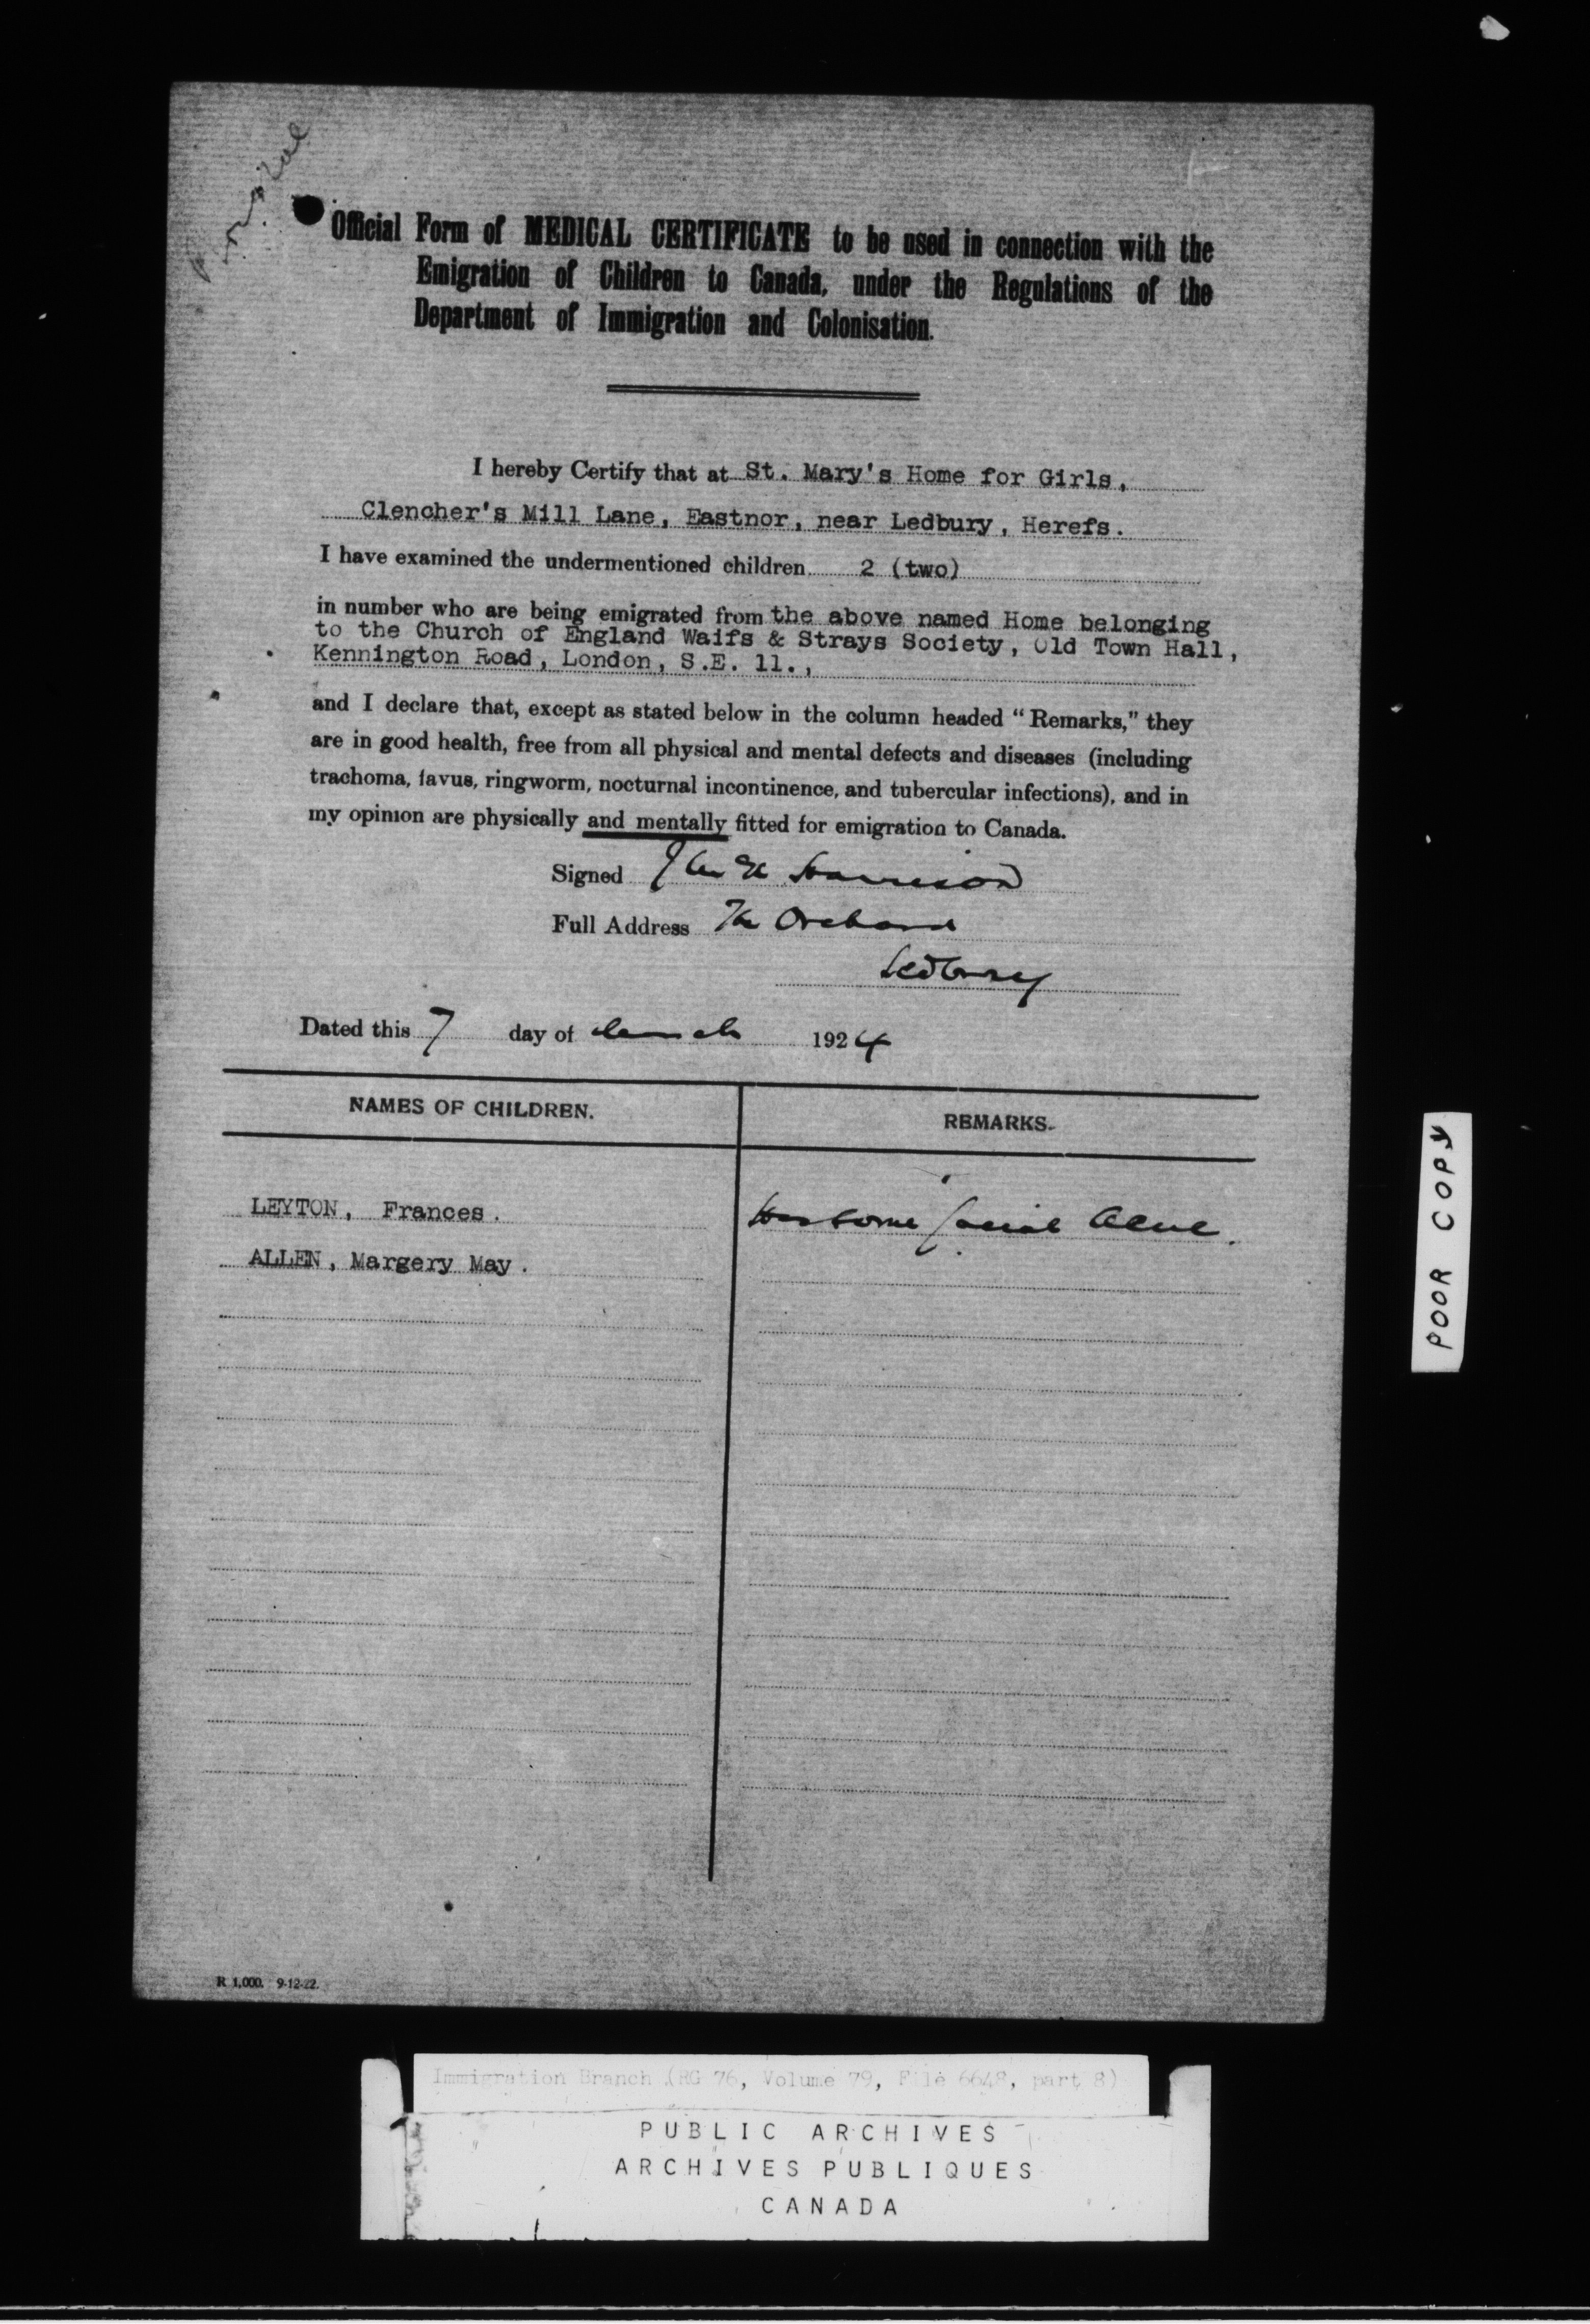 Official Form of MEDICAL CERTIFICATE to be used in connection with the
Emigration of Children to Canada, under the Regulations of the
Department of Immigration and Colonisation.
I hereby Certify that at St. Mary's Home for Girls,
Clencher's Mill Lane, Eastnor, near Ledbury, Herefs.
I have examined the undermentioned children 2 (two)
in number who are being emigrated from the above named Home belonging
to the Church of England Waifs & Strays Society, Old Town Hall,
Kennington Road, London, S.E. 11.,
and I declare that, except as stated below in the column headed “Remarks,” they
are in good health, free from all physical and mental defects and diseases (including
trachoma, favus, ringworm, nocturnal incontinence, and tubercular infections), and in
my opinion are physically and mentally fitted for emigration to Canada.
Signed Harrison
Full Address The Orchard
Ledbury
Dated this 7 day of March 1924
NAMES OF CHILDREN.
REMARKS.
LEYTON, Frances.
Has some facial acne.
ALLEN, Margery May.
POOR COPY
R 1,000. 9-12-22.
Immigration Branch (RG 76, Volume 79, File 6648, part 8)
PUBLIC ARCHIVES
ARCHIVES PUBLIQUES
CANADA